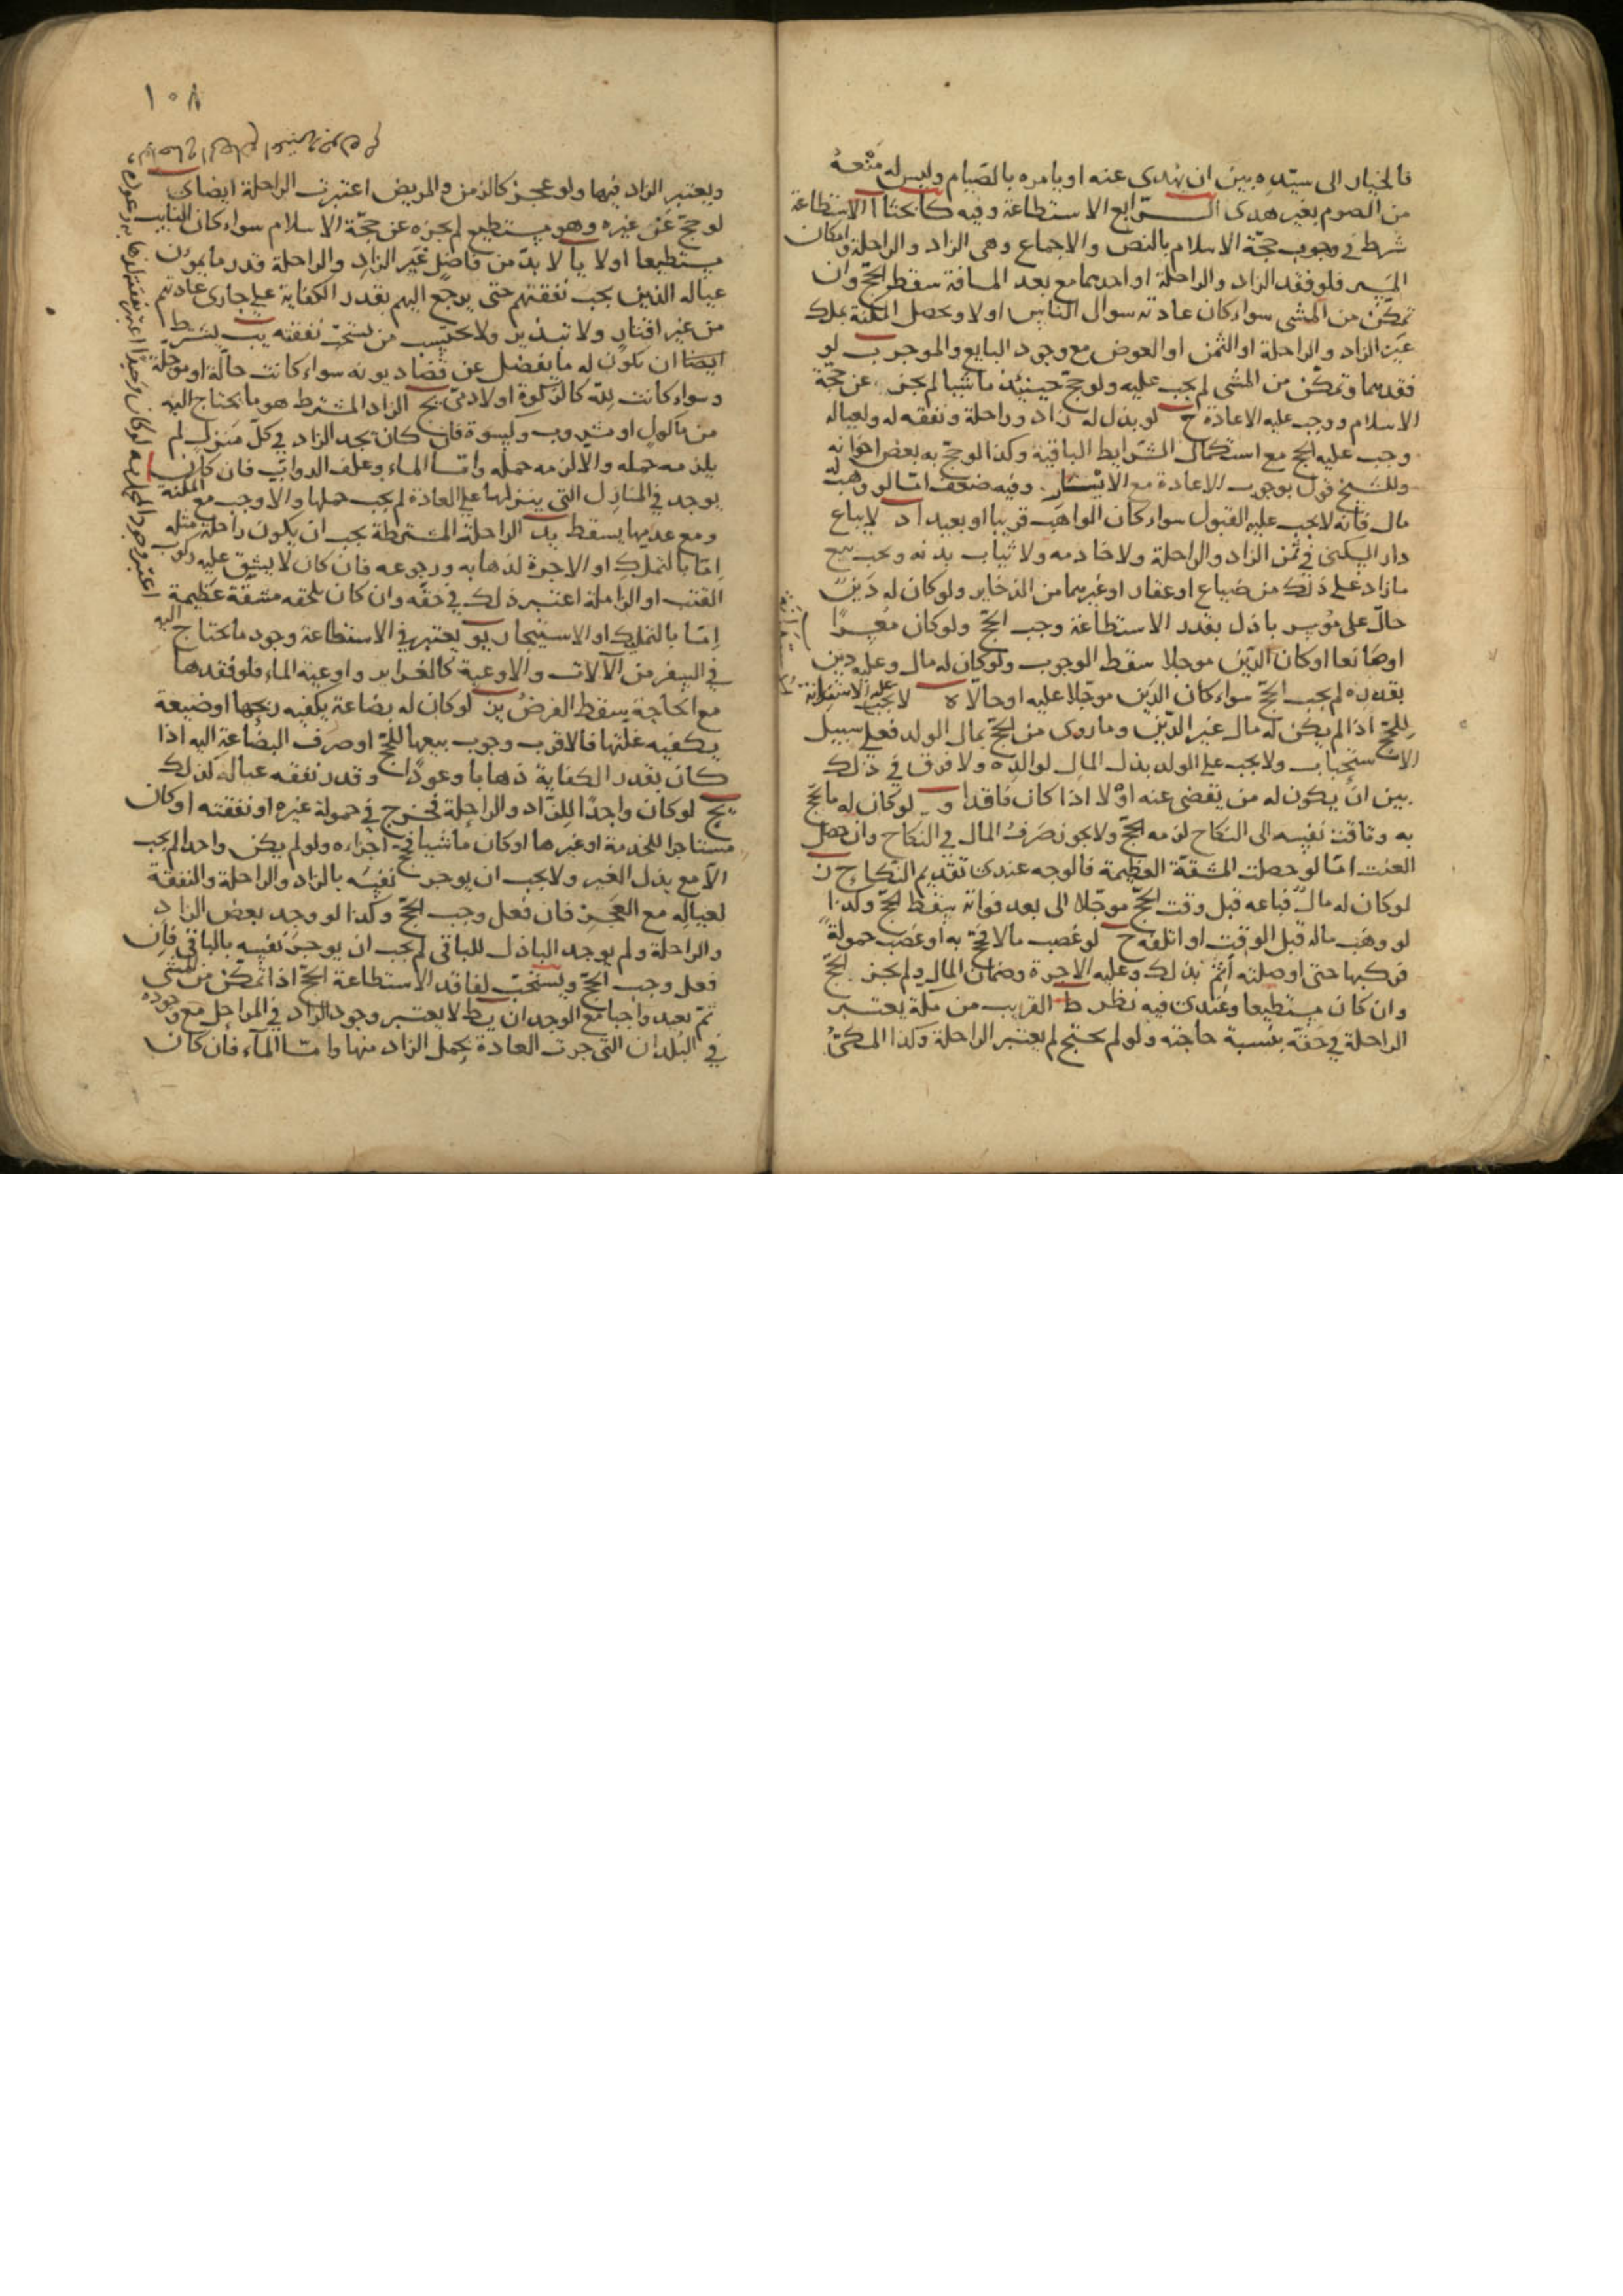 فالخيار الى سيّده بين ان يهدى عنه او يامره بالصيام وليس له منعه
من الصوم بغير هدى الرابع الاستطاعة وفيه كا بحثا ا الاستطاعة
شرط في وجوب حجّة الاسلام بالنص والاجماع وهى الزاد والراحلة وامكان
المسير فلو فقد الزاد والراحلة او احدهما مع بعد المسافة سقط الحجّ وان
تمكّن من المشى سواء كان عادته سوال الناس او لا ويحصل المكنة بملك
عين الزاد والراحلة او الثمن او العوض مع وجود البايع والموجر ب لو
فقدهما وتمكّن من المشى لم يجب عليه ولو حجّ حينئذ ماشيا لم يجز عن حجّة
الاسلام ووجب عليه الاعادة ج لو بذل له زاد وراحلة ونفقه له ولعياله
وجب عليه الحج مع استكمال الشرايط الباقية وكذا لو حجّ به بعض اخوانه
وللشيخ قول بوجوب الاعادة مع الايسار وفيه ضعف امّا لو وهب له
مال فانّه لا يجب عليه القبول سواء كان الواهب قريبا او بعيدا د لا يباع
دار السكنى في ثمن الزاد والراحلة ولا خادمه ولا ثياب بدنه ويجب بيع
ما زاد على ذلك من ضياع او عقار او غيرهما من الذخاير ولو كان له دين
حالّ على موسر باذل بقدر الاستطاعة وجب الحجّ ولو كان معسرًا
او مانعا او كان الدّين موجلا سقط الوجوب ولو كان له مال وعليه دين
بقدره لم يجب الحجّ سواء كان الدّين موجّلا عليه او حالّا ه لا يجب عليه الاستدانة
للحجّ اذا لم يكن له مال غير الدّين وما روى من الحجّ بمال الولد فعلى سبيل
الاستحباب ولا يجب على الولد بذل المال لوالده ولا فرق في ذلك
بين ان يكون له من يقضى عنه او لا اذا كان فاقدا و لو كان له ما يحجّ
به وتاقت نفسه الى النكاح لزمه الحجّ ولا يجوز صرف المال في النكاح وان حصل
العنت امّا لو حصلت المشقّة العظيمة فالوجه عندى تقديم النكاح ز
لو كان له مال فباعه قبل وقت الحجّ موجّلا الى بعد فواته سقط الحجّ وكذا
لو وهب ماله قبل الوقت او اتلفه ح لو غصب مالا فحجّ به او غصب حمولة
فركبها حتى اوصلته أثم بذلك وعليه الاجرة وضمان المال ولم يجز الحجّ
وان كان مستطيعا وعندى فيه نظر ط القريب من مكّة يعتبر
الراحلة في حقّه بنسبة حاجته ولو لم يحتج لم يعتبر الراحلة وكذا المكىّ
١٠٨
ويعتبر الزاد فيها ولو عجز كالزمن والمريض اعتبرت الراحلة ايضا ى
لو حجّ عن غيره وهو مستطيع لم يجزه عن حجّة الاسلام سواء كان النايب
مستطيعا او لا يا لا بدّ من فاضل غير الزاد والراحلة قدر ما يمون
عياله الذين يجب نفقتهم حتى يرجع اليهم بقدر الكفاية على جارى عادتهم
من غير اقتار ولا تبذير ولا يحتسب من يستحبّ نفقته يب يشترط
ايضا ان يكون له ما يفضل عن قضاء ديونه سواء كانت حالّة او موجّلة
وسواء كانت للّه كالزكوة او لادمىّ يج الزاد المشترط هو ما يحتاج اليه
من مأكول او مشروب وكسوة فان كان يجد الزاد في كلّ منزل لم
يلزمه حمله والّا لزمه حمله وامّا الماء وعلف الدوابّ فان كان
يوجد في المنازل التى ينزلها على العادة لم يجب حملها والّا وجب مع المكنة
ومع عدمها يسقط يد الراحلة المشترطة يجب ان يكون راحلة مثله
امّا بالتملك او الاجرة لذهابه ورجوعه فان كان لا يشق عليه ركوب
القتب او الزاملة اعتبر ذلك في حقّه وان كان يلحقه مشقّة عظيمة
اعتبر وجود المحمل يه لو كان وحيدًا اعتبر نفقته لذهابه وعوده
امّا بالتملك او الاستيجار يو يعتبر في الاستطاعة وجود ما يحتاج اليه
في السفر من الآلات والاوعية كالغراير واوعية الماء فلو فقدها
مع الحاجة سقط الفرض يز لو كان له بضاعة يكفيه ربحها او ضيعة
يكفيه غلّتها فالاقرب وجوب بيعها للحجّ او صرف البضاعة اليه اذا
كان بقدر الكفاية ذهابا وعودا وقدر نفقه عياله لذلك
يح لو كان واجدًا للزاد والراحلة فخرج في حمولة غيره او نفقته او كان
مستاجرا للخدمة او غيرها او كان ماشيا فحج اجزاءه ولو لم يكن واجدا لم يجب
الّا مع بذل الغير ولا يجب ان يوجر نفسه بالزاد والراحلة والنفقة
لعياله مع العجز فان فعل وجب الحجّ وكذا لو وجد بعض الزاد
والراحلة ولم يوجد الباذل للباقى لم يجب ان يوجر نفسه بالباقى فان
فعل وجب الحجّ ويستحبّ لفاقد الاستطاعة الحجّ اذا تمكّن من المشى
ثمّ يعيد واجبا مع الوجدان يط لا يعتبر وجود الزاد في المراحل مع وجوده
في البلدان التى جرت العادة بحمل الزاد منها وامّا الماء فان كان